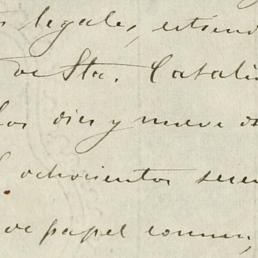 s legales, estiend
de Sta. Catali
los dies y nueve d
ochocientos sesen
de papel comun,